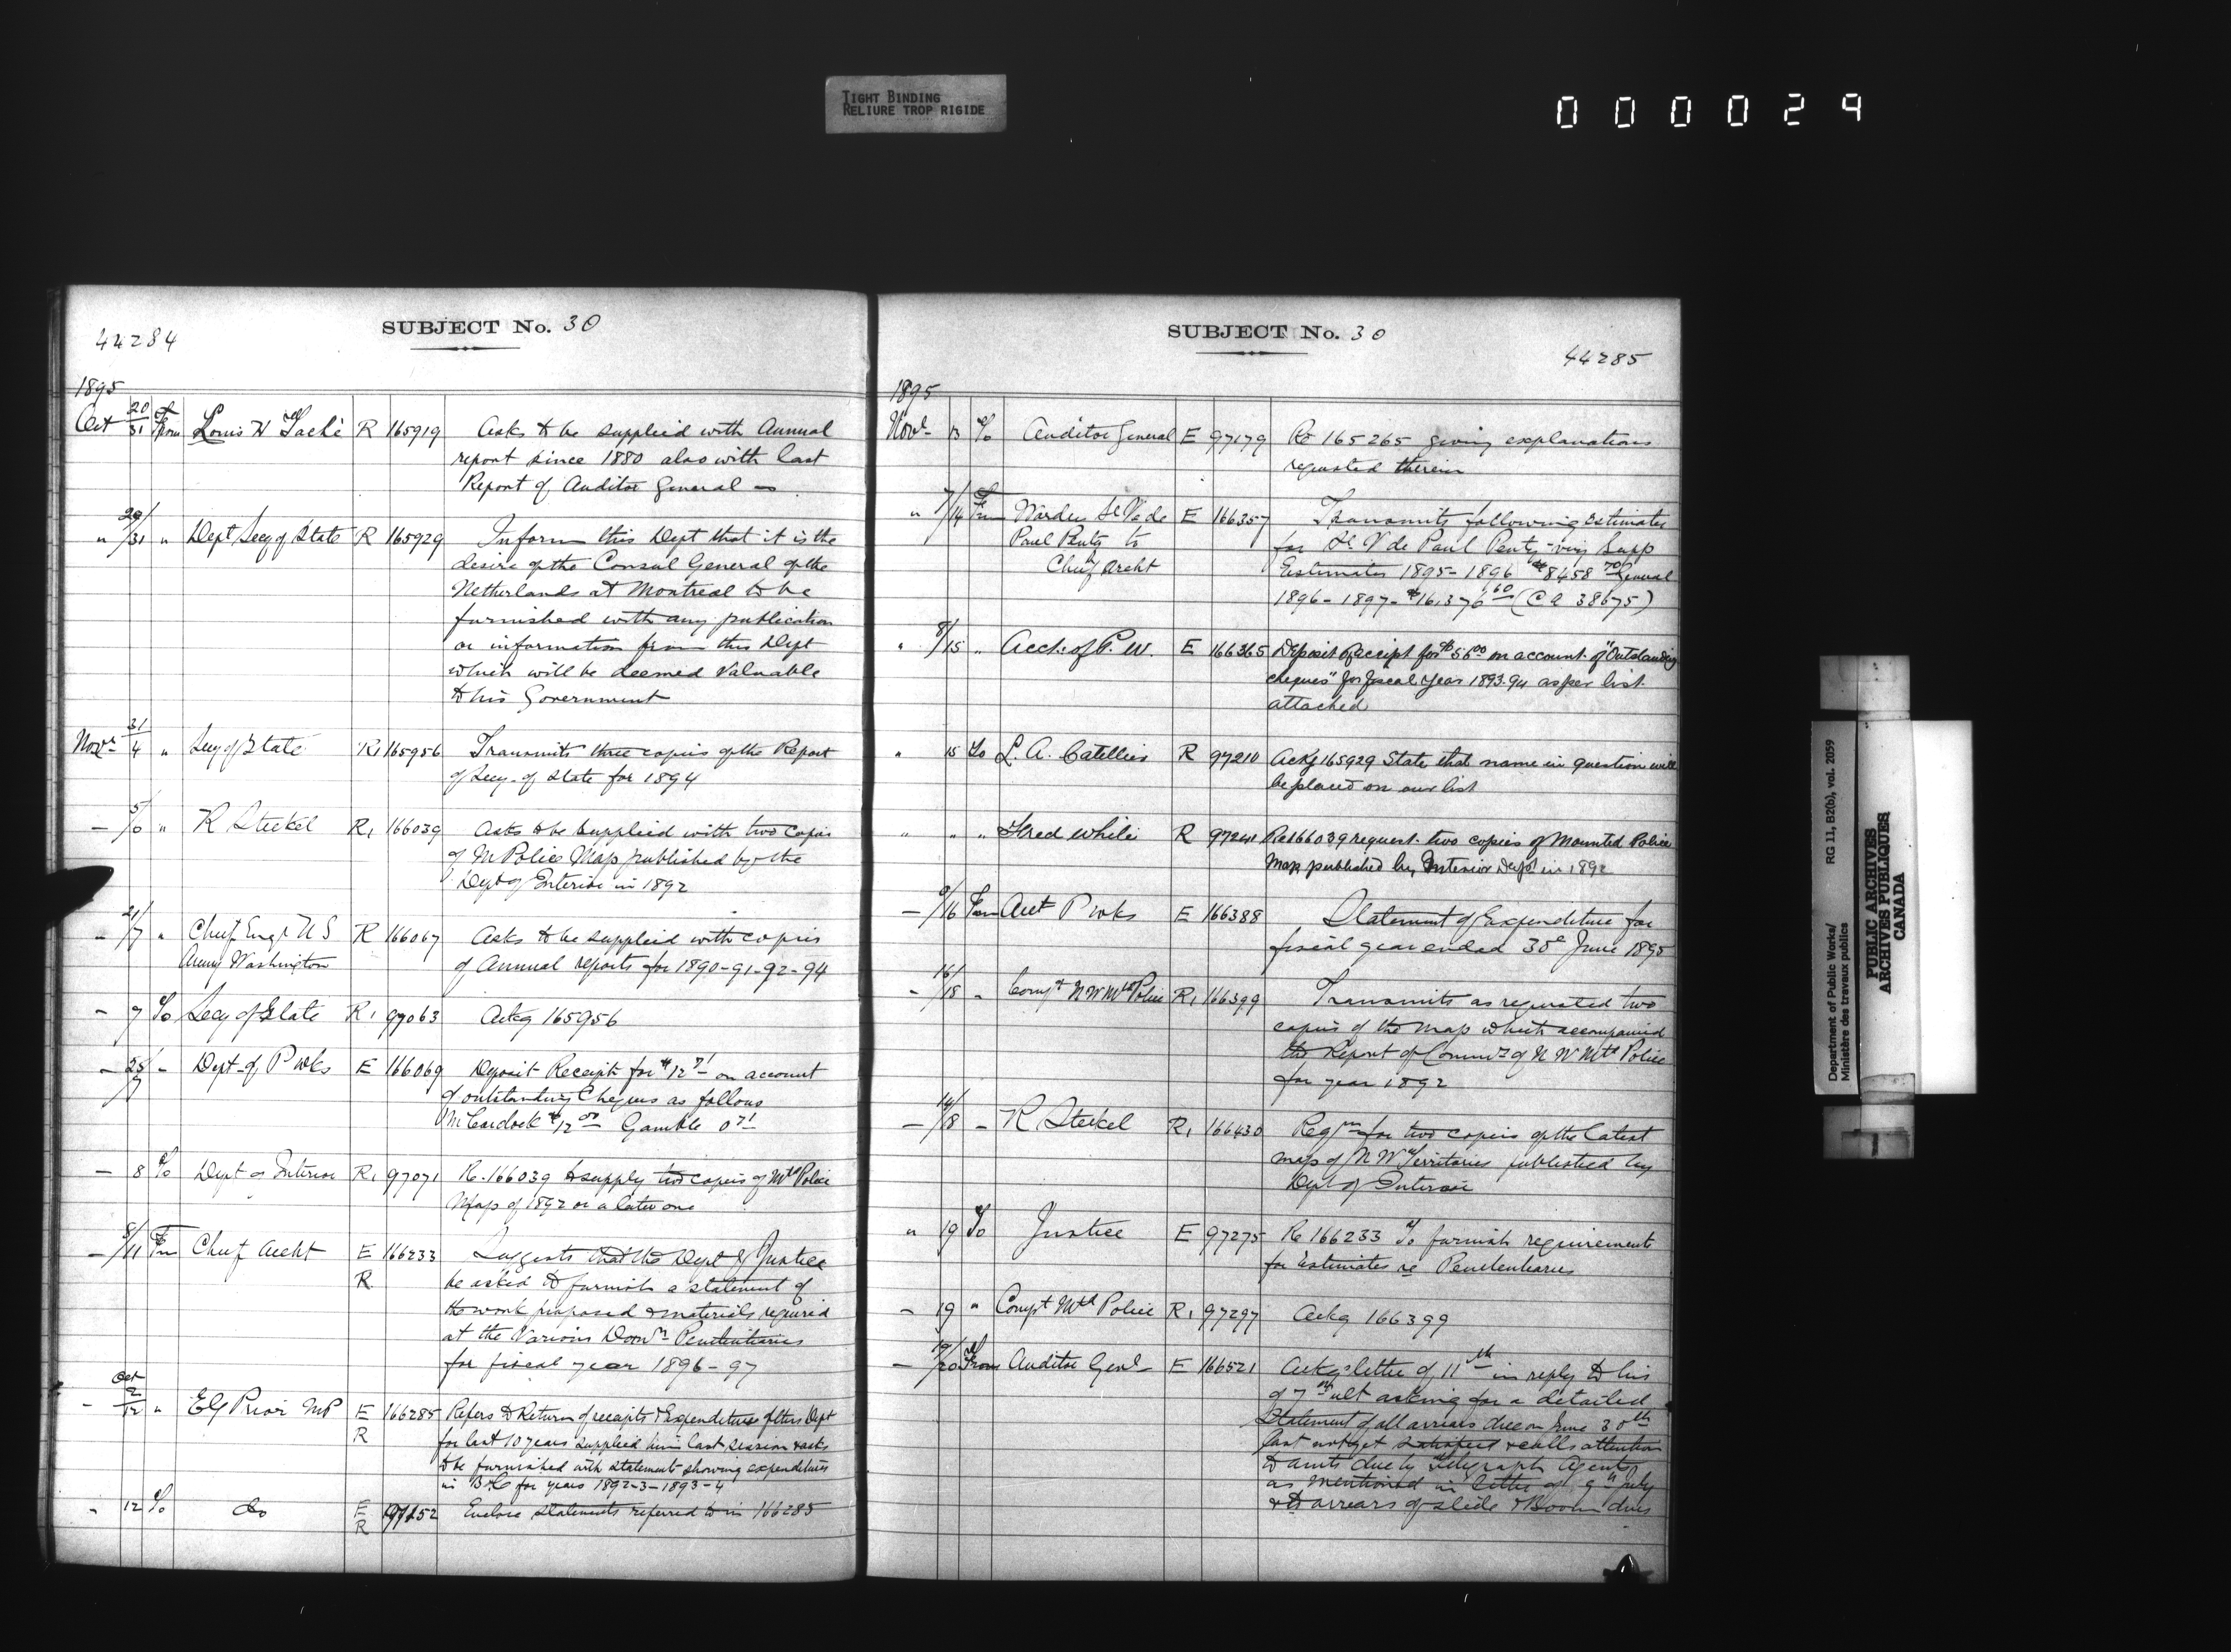 TIGHT BINDING
RELIURE TROP RIGIDE
000029
SUBJECT No. 30
44284
1895
Oct 20/31 From Louis H Taché R 165919 Asks to be supplied with Annual
report since 1880 also with last
Report of Auditor General
" 29/31 " Dept Secy of State R 165929 Inform this Dept that it is the
desire of the Consul General of the
Netherlands at Montreal to be
furnished with any publication
or information from this Dept
which will be deemed valuable
to his Government
Novr 31/4 " Secy of State R1 165956 Transmits three copies of the Report
of Secy. of State for 1894
— 5/6 " R Steckel R1 166039 Asks to be supplied with two copies
of M Police Map published by the
Dept of Interior in 1892
" /7 " Chief Engr U S R 166067 Asks to be supplied with copies
Army Washington of Annual reports for 1890-91-92-94
- 7 To Secy of State R1 97063 Ackg 165956
- /7 - Dept of P Wks E 166069 Deposit Receipt for $12 71 on account
of outstanding Cheques as follows
$12 00 Gamble 0 71
— 8 To Dept of Interior R1 97071 Re. 166039 to supply two copies of Mtd Police
Map of 1892 or a later one
— 8/11 Fm Chief Archt E 166233 Suggests that the Dept of Justice
R be asked to furnish a statement of
the work proposed & materials required
at the various Domn Penitentiaries
for fiscal year 1896-97
Oct
- 2/12 " E G Prior MP E 166285 Refers to Return of receipts & Expenditures of this Dept
R for last 10 years supplied him last session & asks
to be furnished with statements showing expenditures
in B.C for years 1892-3-1893-4
" 12 To do E 97152 Enclose statements referred to in 166285
R
SUBJECT No. 30
44285
1895
Novr 13 To Auditor General E 97179 Re 165265 giving explanations
requested therein
" 7/14 Fm Warden St V de E 166357 Transmits following estimates
Paul Penty to for St. V de Paul Penty - viz Supp
Chief Archt Estimates 1895-1896 $8458 70 General
1896-1897- $16,376 60 (C A 38675)
" 8/15 " Acct. of P. W. E 166365 Deposit Receipt for $56 00 on account of "Outstanding
cheques" for fiscal year 1893.94 as per list
attached
" 15 To L. A. Catellier R 97210 Ackg 165929 State that name in question will
be placed on our list
" " " Fred White R 97241 Re 166039 request two copies of Mounted Police
Map published by Interior Dept in 1892
— 9/16 From Acct P Wks E 166388 Statement of Expenditure for
fiscal year ended 30th June 1895
- 16/18 - Compt N W Mtd Police R1 166399 Transmits as requested two
copies of the map which accompanied
the Report of Commr of N W Mtd Police
for year 1892
— 14/18 - R Steckel R1 166430 Reqn for two copies of the latest
map of N W Territories published by
Dept of Interior
" 19 To Justice E 97275 Re 166233 To furnish requirements
for Estimates re Penitentiaries
- 19 " Compt Mtd Police R1 97297 Ackg 166399
— 19/20 From Auditor Genl E 166521 Ackg letter of 11th in reply to his
of 7th ult asking for a detailed
Statement of all arrears due on June 30th
last not yet satisfied & calls attention
to amts due by Telegraph Agents
as mentioned in letter of 9th July
& to arrears of slide & Boom dues
Department of Public Works/
Ministère des travaux publics
RG 11, B2(b), vol. 2059
PUBLIC ARCHIVES
ARCHIVES PUBLIQUES
CANADA